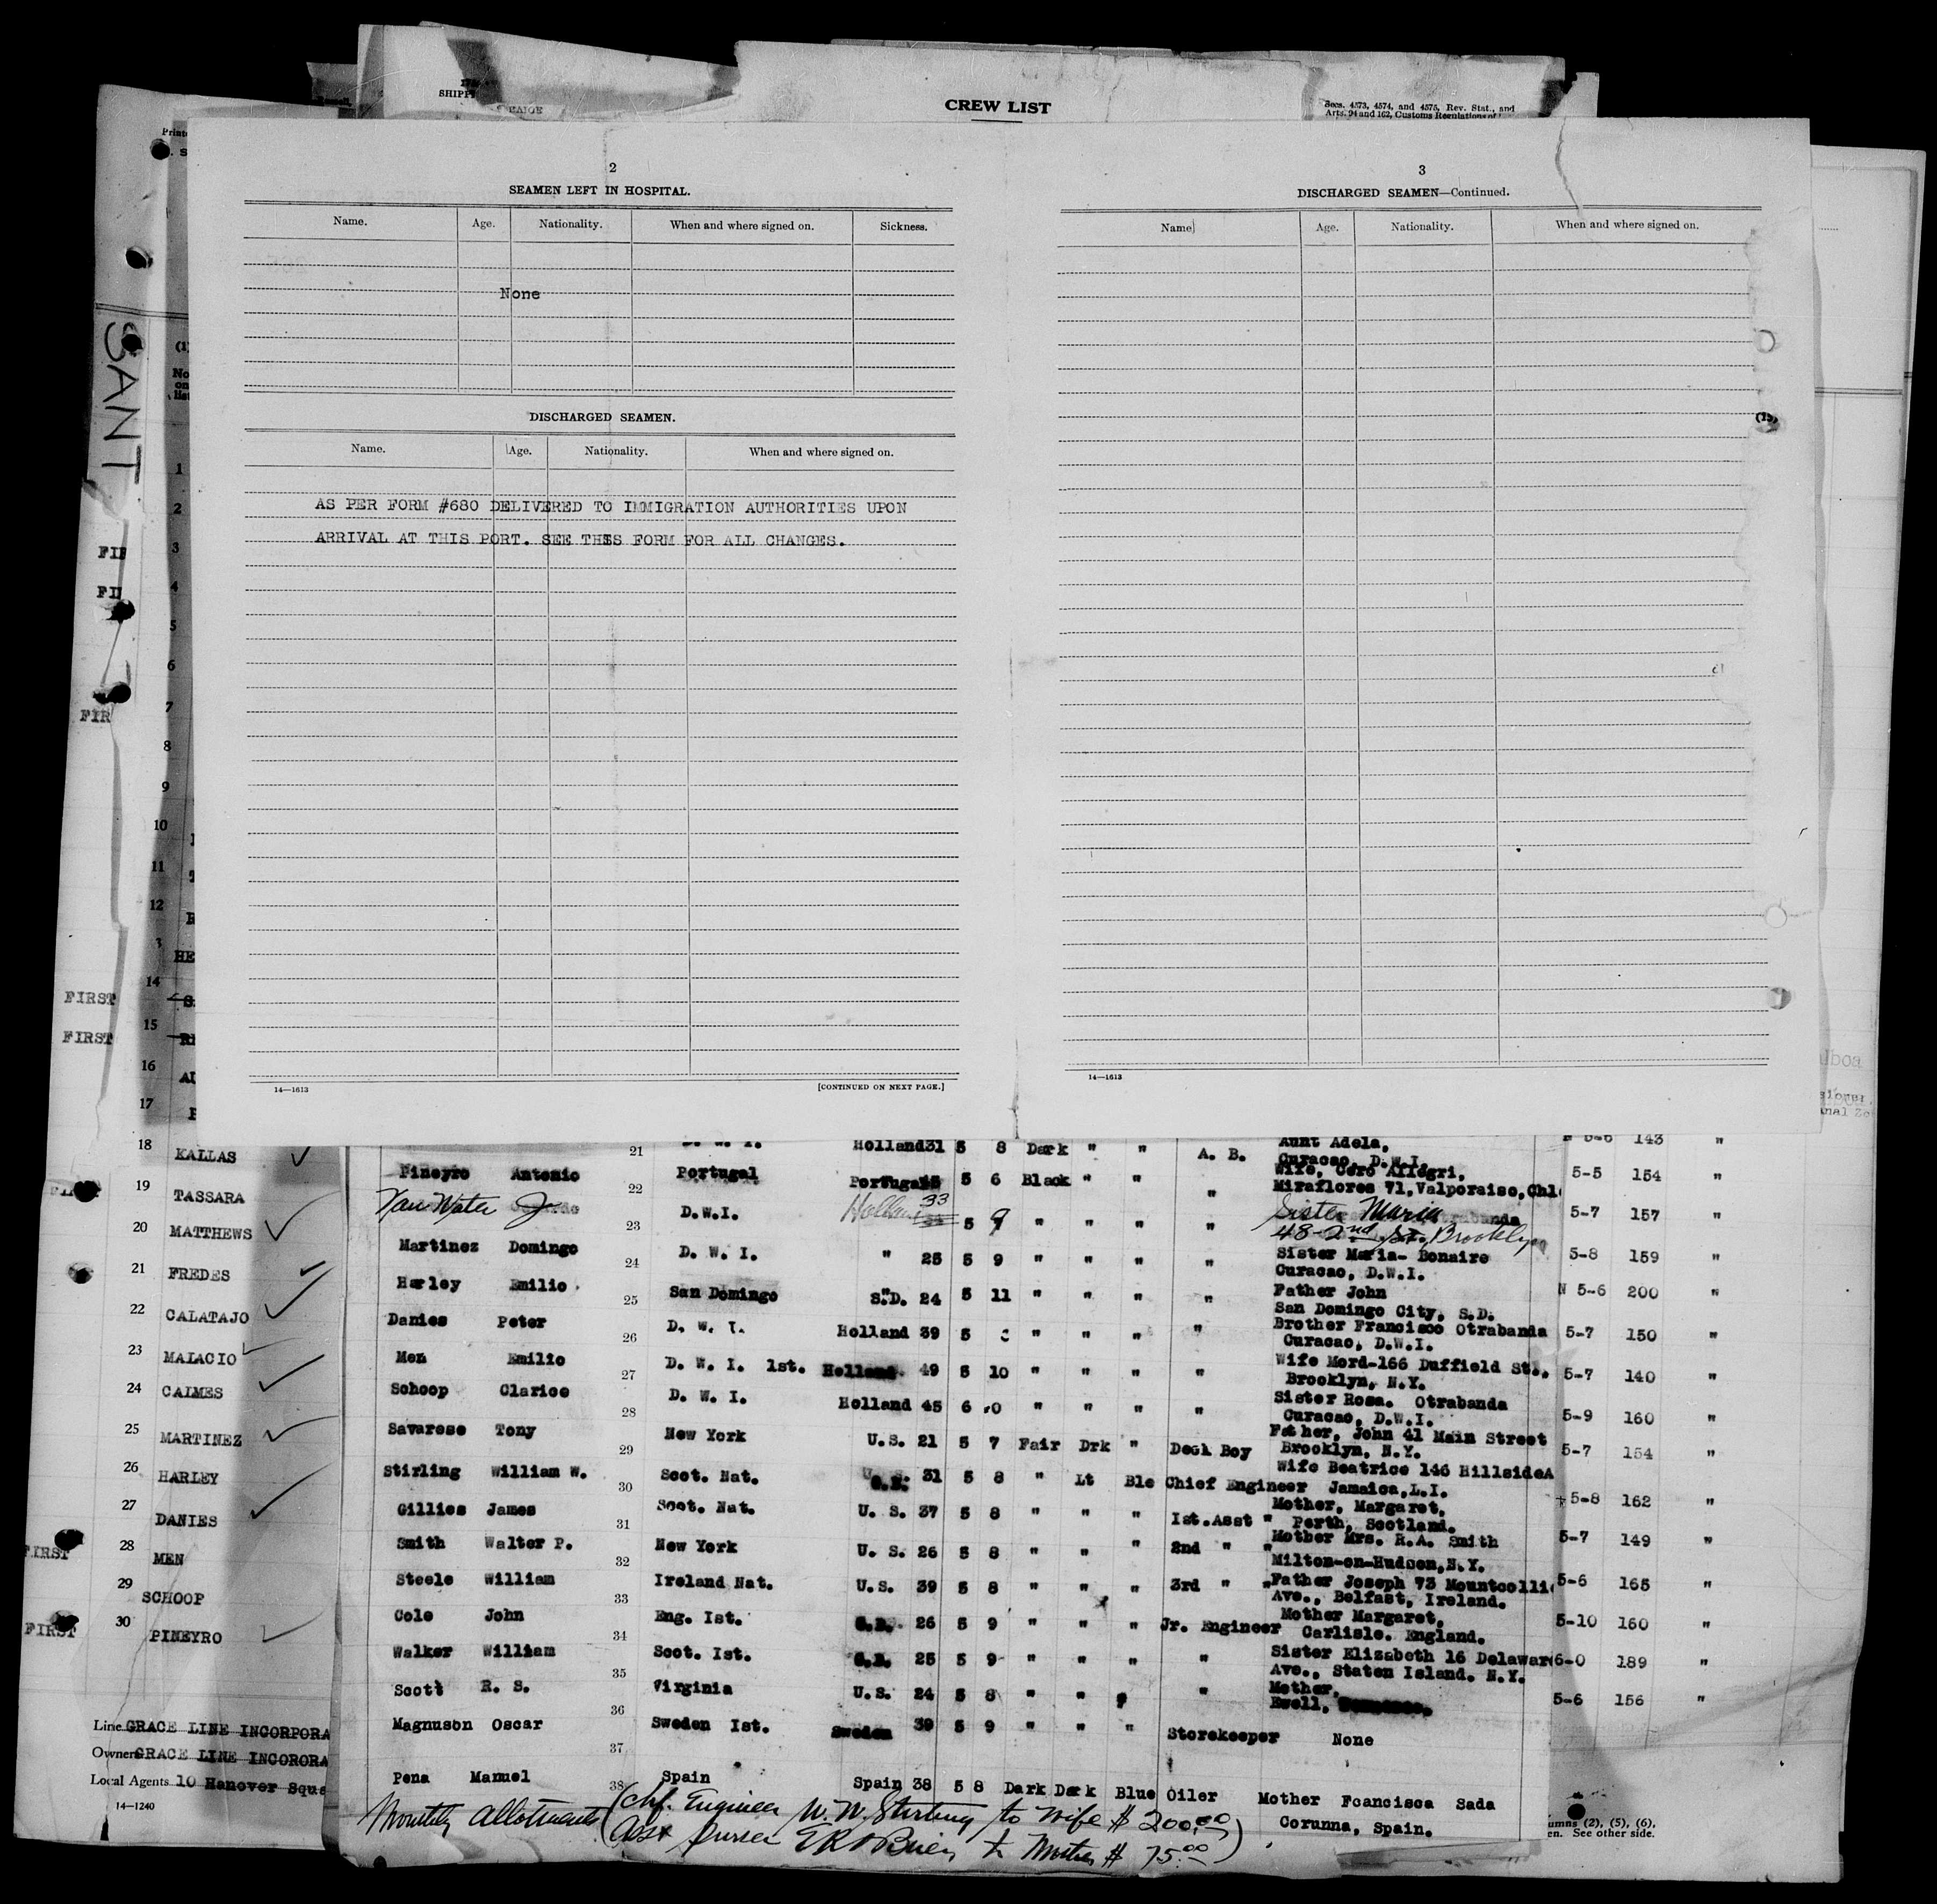 SHIPPI
CREW LIST
Secs. 4573, 4574, and 4575, Rev. Stat., and
Arts. 94 and 162, Customs Regulations of
Printe
2
SEAMEN LEFT IN HOSPITAL.
Name. Age. Nationality. When and where signed on. Sickness.
None
DISCHARGED SEAMEN.
Name. Age. Nationality. When and where signed on.
AS PER FORM #680 DELIVERED TO IMMIGRATION AUTHORITIES UPON
ARRIVAL AT THIS PORT. SEE THIS FORM FOR ALL CHANGES.
14—1613 [CONTINUED ON NEXT PAGE.]
3
DISCHARGED SEAMEN—Continued.
Name Age. Nationality. When and where signed on.
14—1613
(15)
SANT
(1)
No
on
1
2
3
FIR
4
5
6
7
FIR
8
9
10
11
12
HE
14
FIRST
15
FIRST
16
17
18 KALLAS
19 TASSARA
20 MATTHEWS
21 FREDES
22 CALATAJO
23 MALACIO
24 CAIMES
25 MARTINEZ
26 HARLEY
27 DANIES
28 MEN
FIRST
29 SCHOOP
30 PINEYRO
FIRST
Line GRACE LINE INCORPORA
Owners GRACE LINE INCORORA
Local Agents 10 Hanover Squa
14—1240
21 D. W. I. Holland 31 5 8 Dark " " A. B. Aunt Adela,
Curacao, D.W.I. 5-6 143 "
Pineyro Antonio 22 Portugal Portugal 5 6 Black " " " Wife, Cero Allegri,
Miraflores 71, Valporaiso, Chl 5-5 154 "
Van Water J 23 D.W.I. Holland 33 5 9 " " " " Sister Maria
48-2nd St. Brooklyn 5-7 157 "
Martinez Domingo 24 D. W. I. " 25 5 9 " " " " Sister Maria- Bonaire
Curacao, D.W.I. 5-8 159 "
Harley Emilio 25 San Domingo S.D. 24 5 11 " " " " Father John
San Domingo City, S.D. N 5-6 200 "
Danies Peter 26 D. W. I. Holland 39 5 " " " " Brother Francisco Otrabanda
Curacao, D.W.I. 5-7 150 "
Men Emilio 27 D. W. I. 1st. Holland 49 5 10 " " " " Wife Mord-166 Duffield St.,
Brooklyn, N.Y. 5-7 140 "
Schoop Clarice 28 D. W. I. Holland 45 6 0 " " " " Sister Rosa. Otrabanda
Curacao, D.W.I. 5-9 160 "
Savarese Tony 29 New York U.S. 21 5 7 Fair Drk " Deck Boy Father, John 41 Main Street
Brooklyn, N.Y. 5-7 154 "
Stirling William W. 30 Scot. Nat. 31 5 8 " Lt Ble Chief Engineer Wife Beatrice 146 HillsideA
Jamaica, L.I. 5-8 162 "
Gillies James 31 Scot. Nat. U. S. 37 5 8 " " " Ist.Asst " Mother, Margaret,
Perth, Scotland. 5-7 149 "
Smith Walter P. 32 New York U. S. 26 5 8 " " " 2nd " " Mother Mrs. R.A. Smith
Milton-on-Hudson, N.Y.
Steele William 33 Ireland Nat. U.S. 39 5 8 " " " 3rd " " Father Joseph 73 Mountcolli
Ave., Belfast, Ireland. 5-6 165 "
Cole John 34 Eng. Ist. G.B. 26 5 9 " " " Jr. Engineer Mother Margaret,
Carlisle. England. 5-10 160 "
Walker William 35 Scot. Ist. G.B. 25 5 9 " " " " Sister Elizabeth 16 Delawar
Ave., Staten Island. N.Y. 6-0 189 "
Scott R. S. 36 Virginia U.S. 24 5 8 " " " Mother,
Ewell, 5-6 156 "
Magnuson Oscar 37 Sweden Ist. Sweden 39 5 9 " " " Storekeeper None
Pena Manuel 38 Spain Spain 38 5 8 Dark Dark Blue Oiler Mother Fcancisca Sada
Corunna, Spain.
Monthly Allotments (Chf. Engineer W. W. Stirling to Wife $ 200.00
Asst Purser E R O'Brien to Mother $ 75.00)
umns (2), (5), (6),
en. See other side.